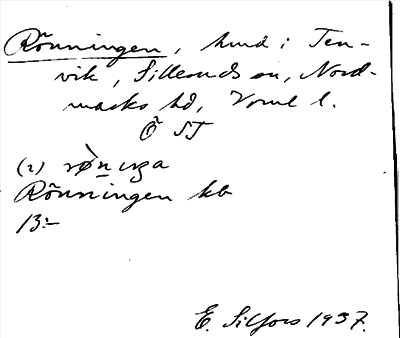 Rönningen, hmd i Ten-
vik, Silleruds sn, Nord-
marks hd, Vrml l.
Ö ST
(2) rø̀nıŋa
Rönningen kb
13:-
E. Silfors 1937.